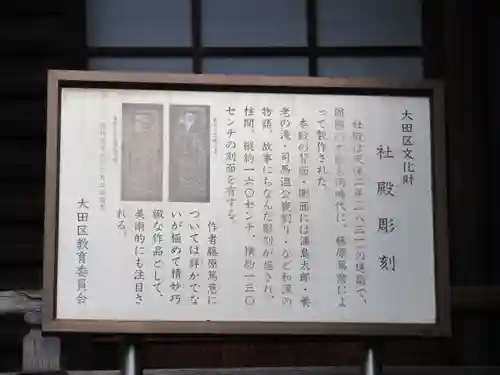 大田区文化財
社殿彫刻
社殿は天保二年(一八三一)の建築で、
周囲の彫刻も同時代に、藤原篤意によ
って製作された。
本殿の背面・側面には浦島太郎・養
老の滝・司馬温公甕割り・など和漢の
物語、故事にちなんだ彫刻が施され、
柱間、縦約一六〇センチ、横約一三〇
センチの刻面を有する。
作者藤原篤意に
ついては詳かでな
いが極めて精妙巧
緻な作品として、
美術的にも注目さ
れる。
大田区教育委員会